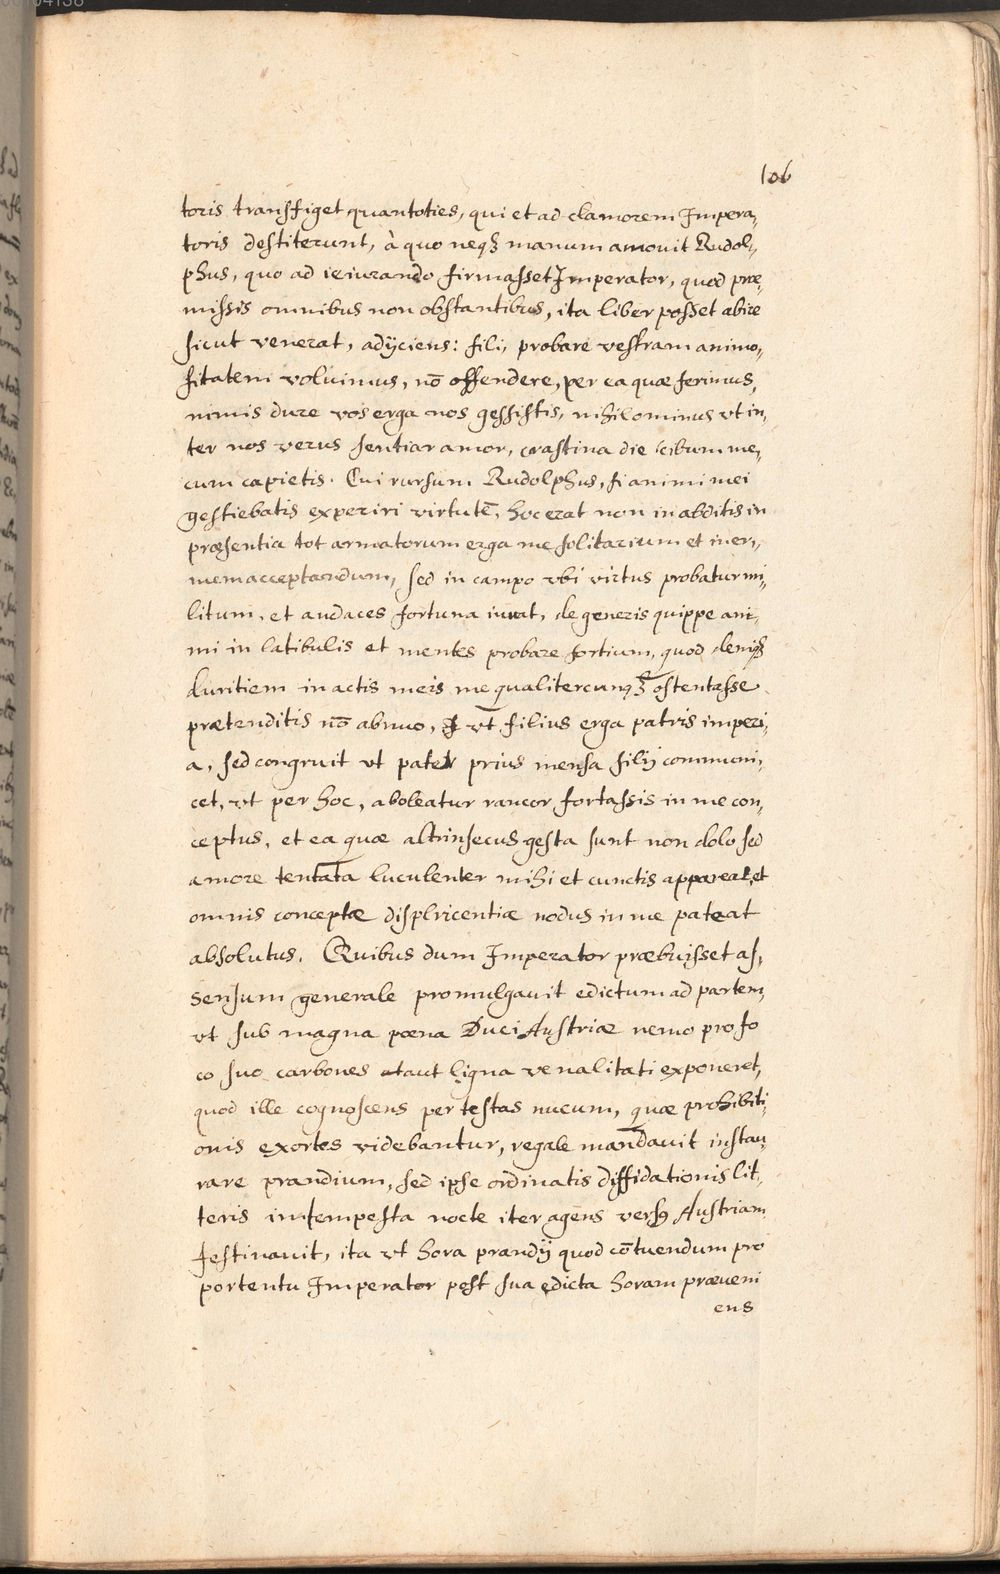 106
toris transfiget quantoties, qui et ad clamorem Impera,
toris destiterunt, à quo neqȝ manum amouit Rudol,
phus, quo ad ieiurando firmasset Imperator, quod præ,
missis omnibus non obstantibus, ita liber posset abire
sicut venerat, adÿciens: fili, probare vestram animo,
sitatem voluimus, nō offendere, per ea quæ ferimus,
nimis dure vos erga nos gessistis, nihilominus vt in,
ter nos verus sentiar amor, crastina die cibum me,
cum capietis. Cui rursum Rudolphus, si animi mei
gestiebatis experiri virtutē, hoc erat non in abditis in
præsentia tot armatorum erga me solitarium et iner,
mem acceptandum, sed in campo vbi virtus probatur mi,
litum, et audaces fortuna iuuat, degeneris quippe ani,
mi in latibulis et mentes probare fortium, quod deniqȝ
duritiem in actis meis me qualitercunqȝ ostentasse
prætenditis nō abnuo, vt filius erga patris imperi,
a, sed congruit vt pater prius mensa filÿ communi,
cet, vt per hoc, aboleatur rancor fortassis in me con,
ceptus, et ea quæ altrinsecus gesta sunt non dolo sed
amore tentata luculenter mihi et cunctis appareat, et
omnis conceptæ displicentiæ nodus in me pateat
absolutus. Quibus dum Imperator præbuisset as,
sensum generale promulgauit edictum ad partem,
vt sub magna pœna Duci Austriæ nemo pro fo
co suo carbones aut ligna venalitati exponeret,
quod ille cognoscens per testas nucum, quæ prohibiti,
onis exortes videbantur, regale mandauit instau,
rare prandium, sed ipse ordinatis diffidationis lit,
teris intempesta nocte iter agens versꝰ Austriam
festinauit, ita vt hora prandÿ quod cōtuendum pro
portentu Imperator post sua edicta horam præueni
ens